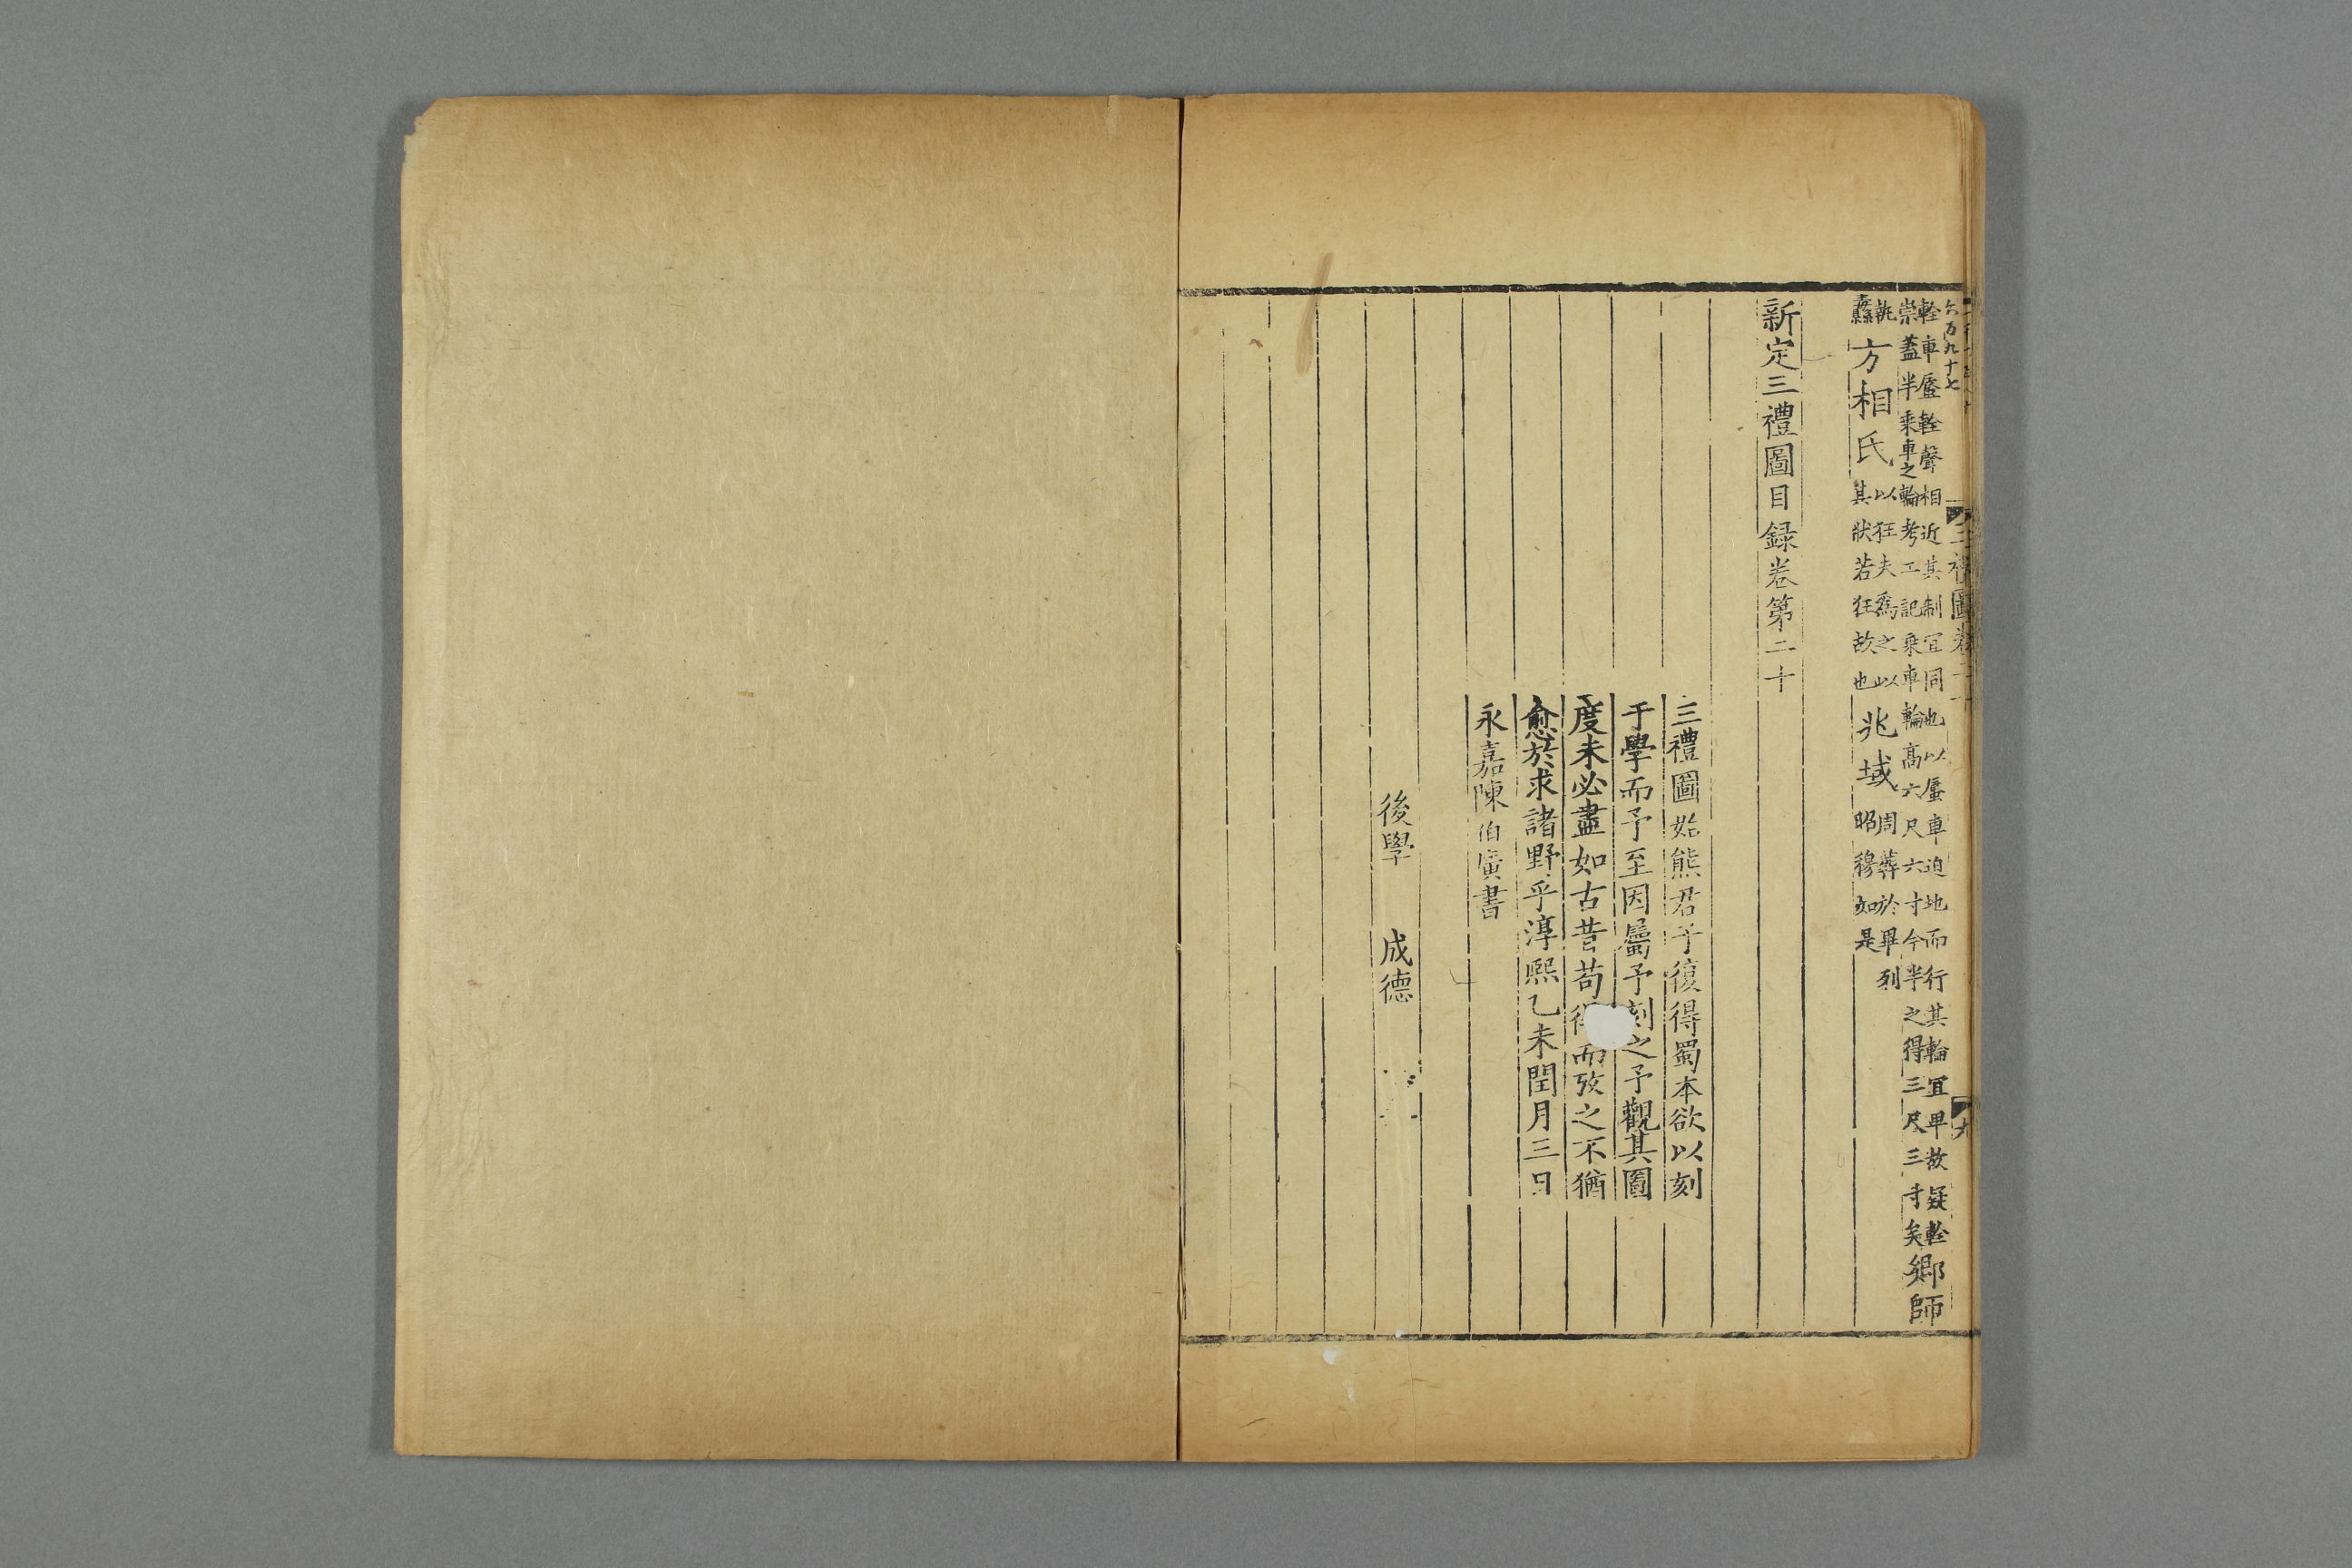 六百九十七
三禮圖卷二十
九
輇車蜃輇聲相近其制宜同也以蜃車迫地而行其輪宜卑故疑輇
崇蓋半乘車之輪考工記乘車輪高六尺六寸今半之得三尺三寸矣鄉師
執
纛方相氏以狂夫爲之以
其狀若狂故也兆域周葬於畢列
昭穆如是
新定三禮圖目録卷第二十
三禮圖始熊君子復得蜀本欲以刻
于學而予至因屬予刻之予觀其圖
度未必盡如古昔苟得而攷之不猶
愈於求諸野乎淳熙乙未閏月三日
永嘉陳伯廣書
後學 成德